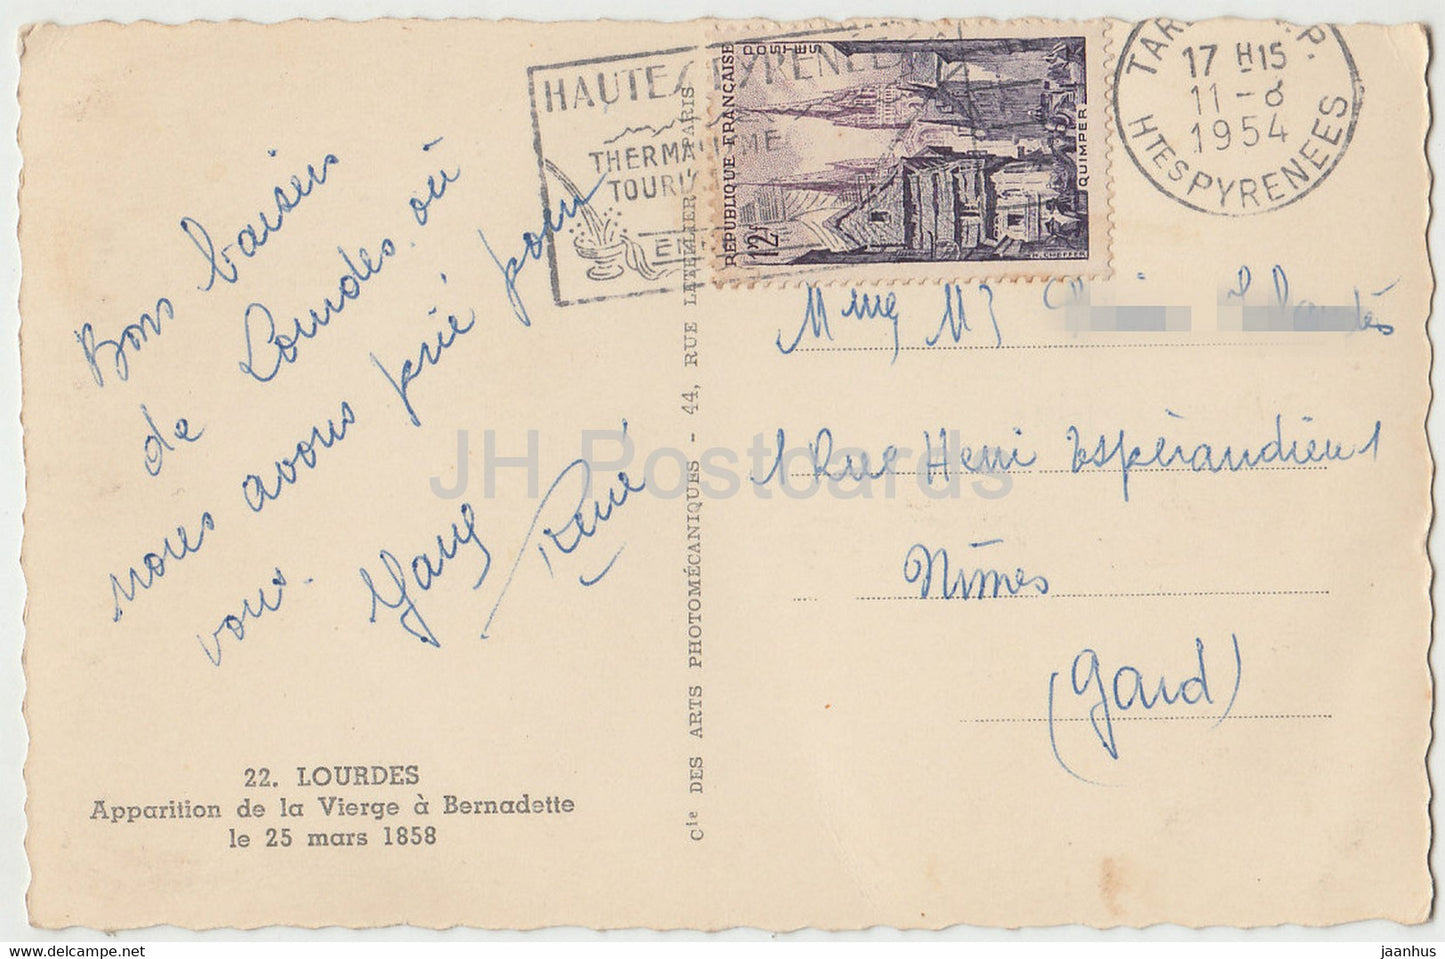 Bons baisers
de Lourdes. où
nous avons prié pour
vous.
René
22. LOURDES
Apparition de la Vierge à Bernadette
le 25 mars 1858
Cie DES ARTS PHOTOMÉCANIQUES - 44, RUE LETELLIER PARIS
HAUTES PYRENEES
THERMALISME
TOURIS
RÉPUBLIQUE FRANÇAISE
POSTES
12F
QUIMPER
H. CHEFFER
17 H15
11 - 8
1954
HTES PYRENEES
1 Rue Henri Espérandieu
Nîmes
(Gard)
JH Postcards
www.delcampe.net
jaanhus